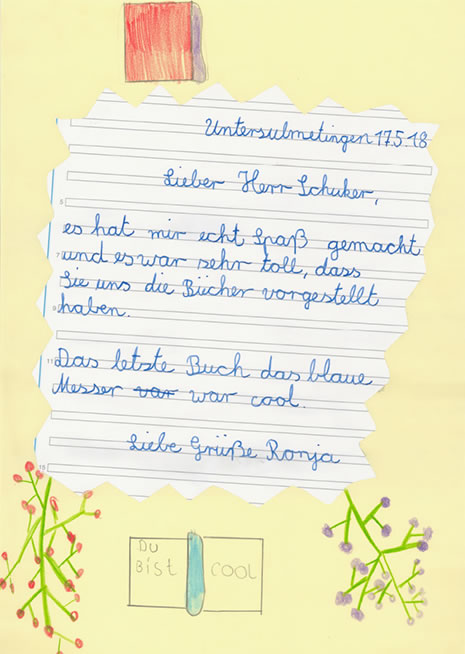 Untersulmetingen 17.5.18
Lieber Herr Schuker,
es hat mir echt Spaß gemacht
und es war sehr toll, dass
Sie uns die Bücher vorgestellt
haben.
Das letzte Buch das blaue
Messer var war cool.
Liebe Grüße Ronja
Du
Bist COOL